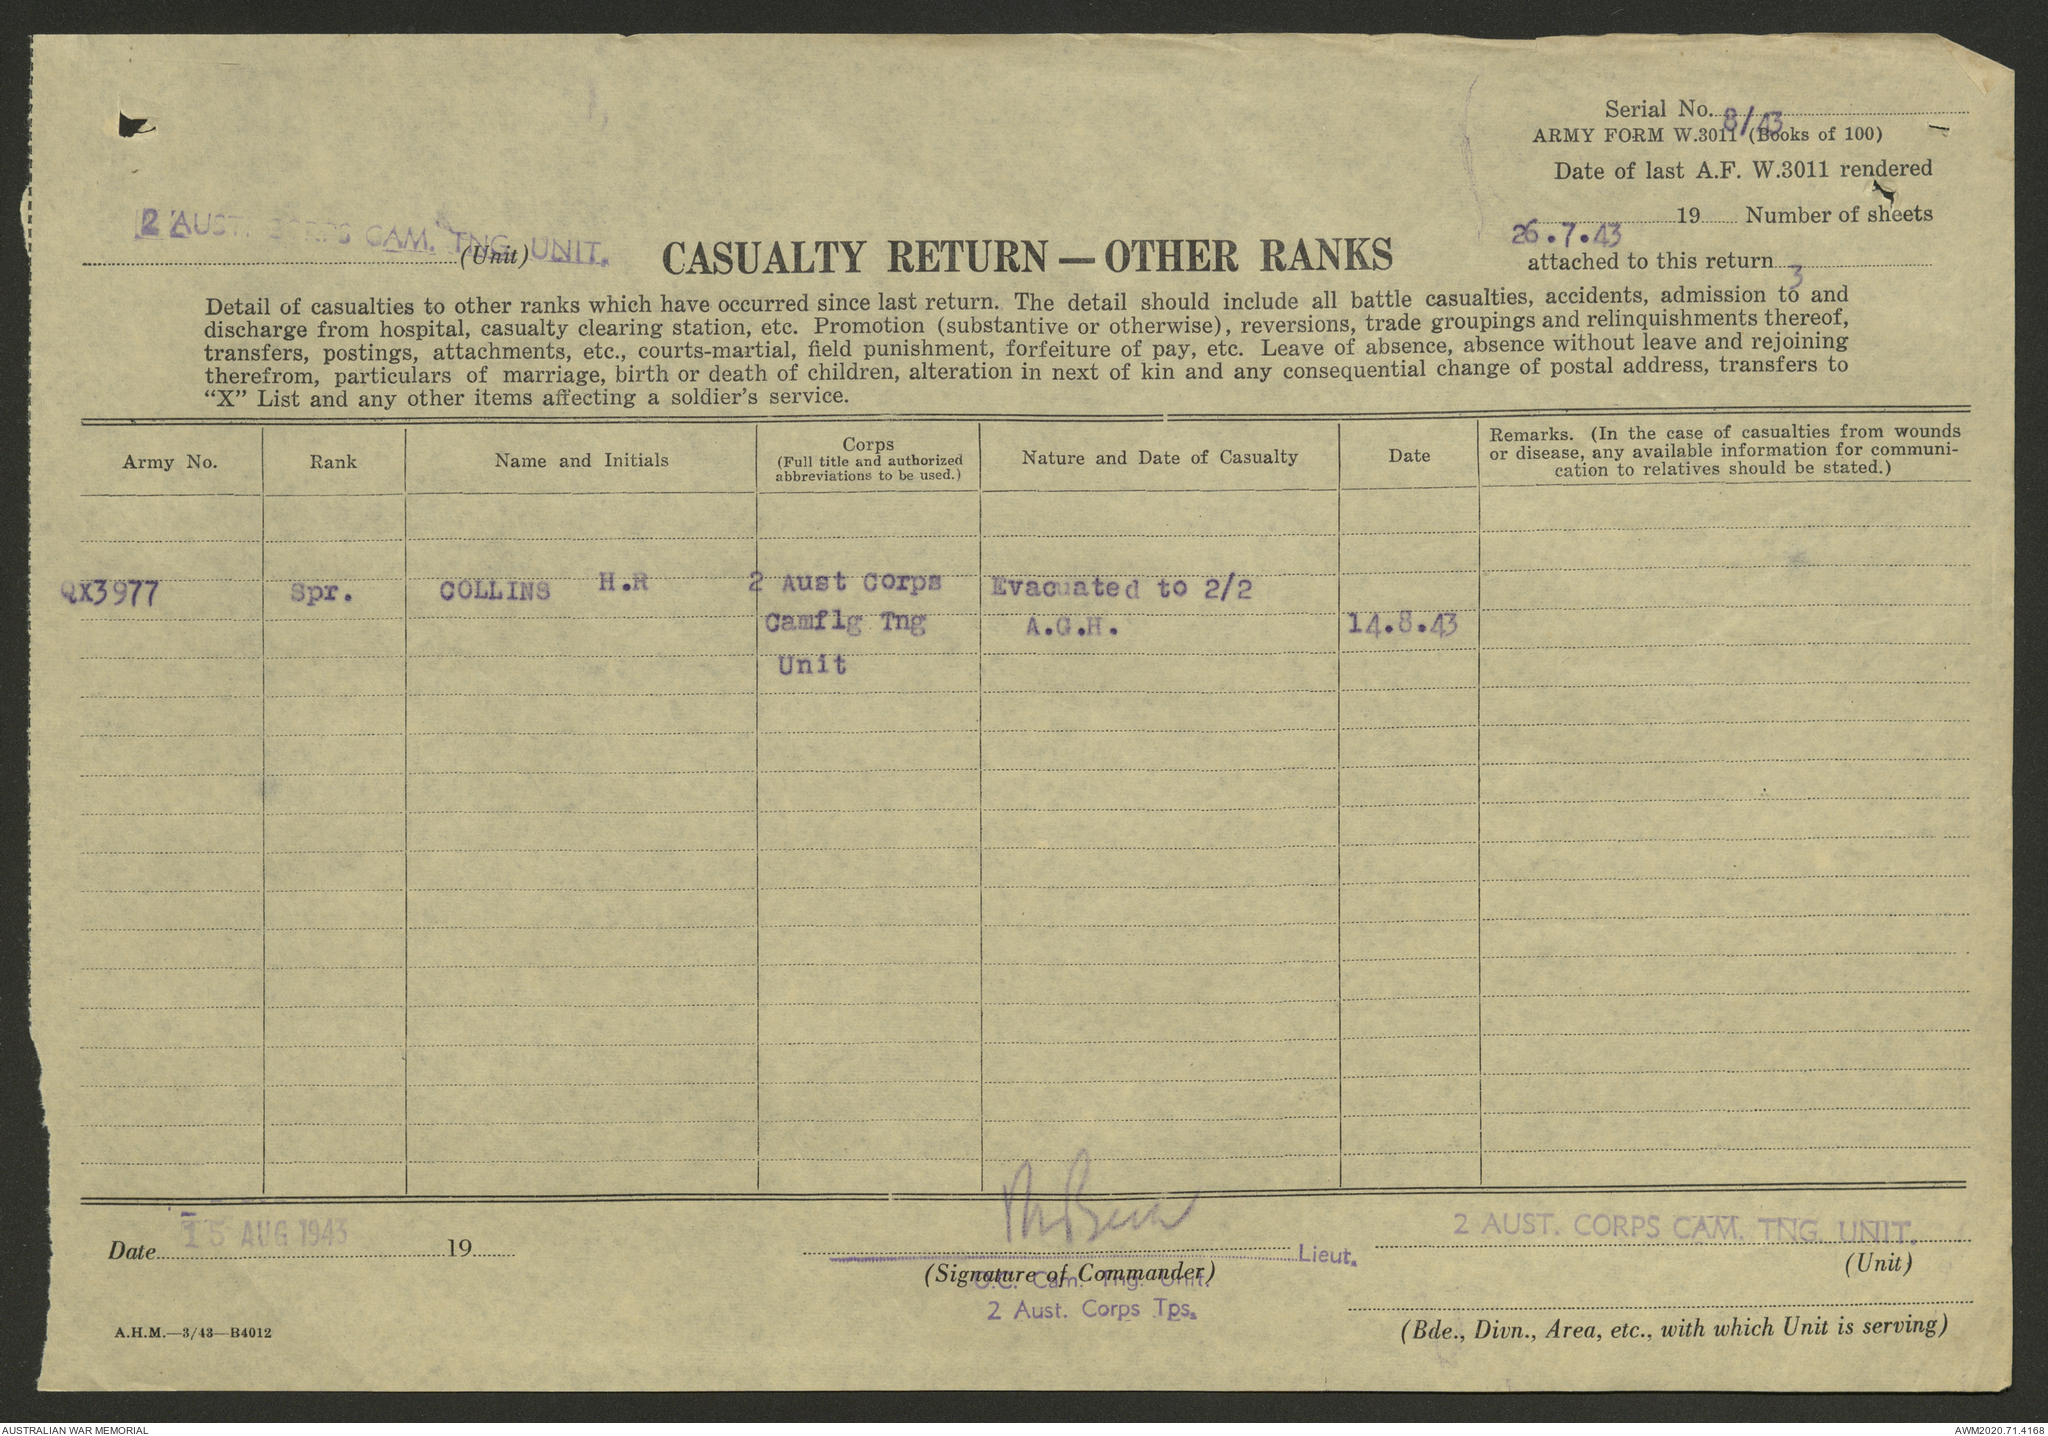 Serial No. 8/43
ARMY FORM W.3011 (Books of 100)
Date of last A.F. W.3011 rendered
26.7.43 19 Number of sheets
attached to this return 3
2 AUST. CORPS CAM. TNG. UNIT.
(Unit)
CASUALTY RETURN — OTHER RANKS
Detail of casualties to other ranks which have occurred since last return. The detail should include all battle casualties, accidents, admission to and
discharge from hospital, casualty clearing station, etc. Promotion (substantive or otherwise), reversions, trade groupings and relinquishments thereof,
transfers, postings, attachments, etc., courts-martial, field punishment, forfeiture of pay, etc. Leave of absence, absence without leave and rejoining
therefrom, particulars of marriage, birth or death of children, alteration in next of kin and any consequential change of postal address, transfers to
“X” List and any other items affecting a soldier’s service.
Army No.
Rank
Name and Initials
Corps
(Full title and authorized
abbreviations to be used.)
Nature and Date of Casualty
Date
Remarks. (In the case of casualties from wounds
or disease, any available information for communi-
cation to relatives should be stated.)
QX3977 Spr. COLLINS H.R 2 Aust Corps Evacuated to 2/2
Camflg Tng A.G.H. 14.8.43
Unit
Date 15 AUG 1943 19
Lieut.
(Signature of Commander)
O.C. Cam. Tng. Unit.
2 Aust. Corps Tps.
2 AUST. CORPS CAM. TNG. UNIT.
(Unit)
(Bde., Divn., Area, etc., with which Unit is serving)
A.H.M.—3/43—B4012
AUSTRALIAN WAR MEMORIAL
AWM2020.71.4168